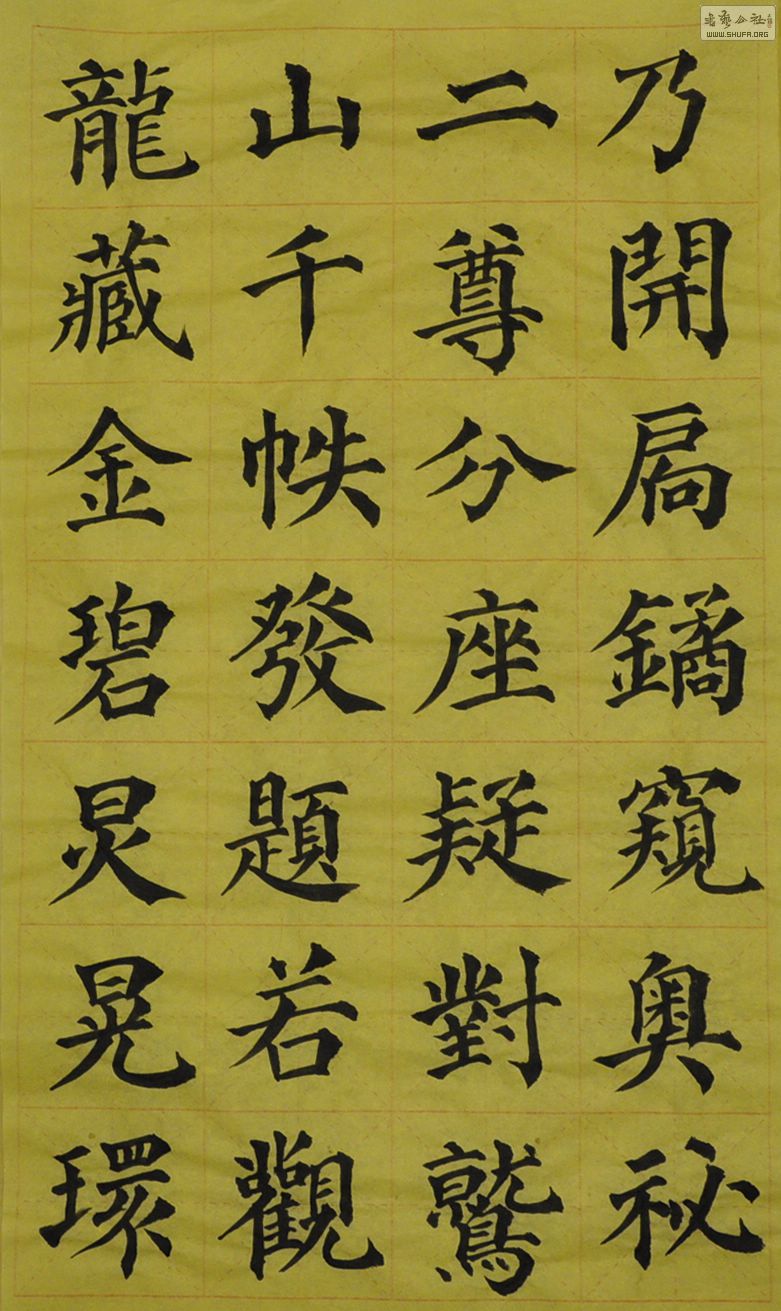 乃開扃鐍窺奧祕
二尊分座疑對鷲
山千帙發題若觀
龍藏金碧炅晃環
書藝公社
WWW.SHUFA.ORG